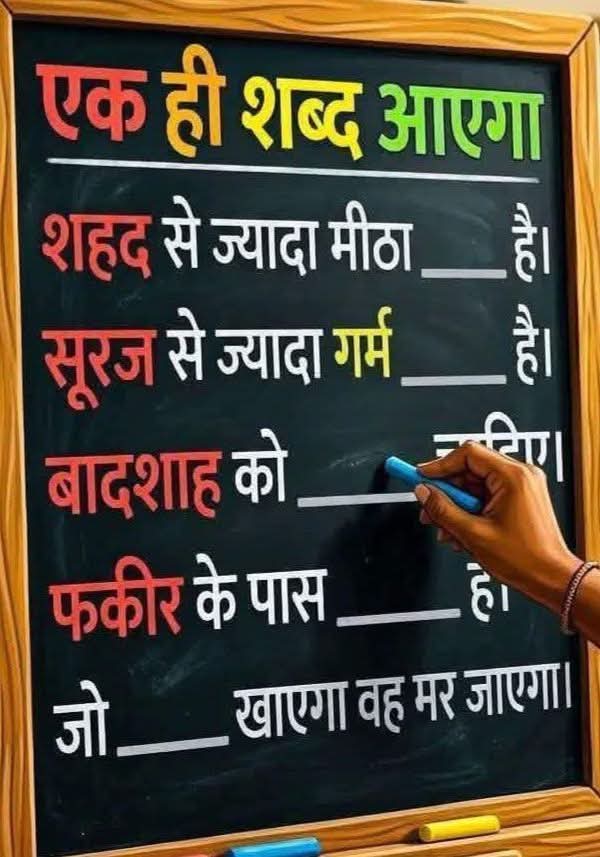 एक ही शब्द आएगा
शहद से ज्यादा मीठा ____ है।
सूरज से ज्यादा गर्म ____ है।
बादशाह को ____ चाहिए।
फकीर के पास ____ है।
जो ____ खाएगा वह मर जाएगा।